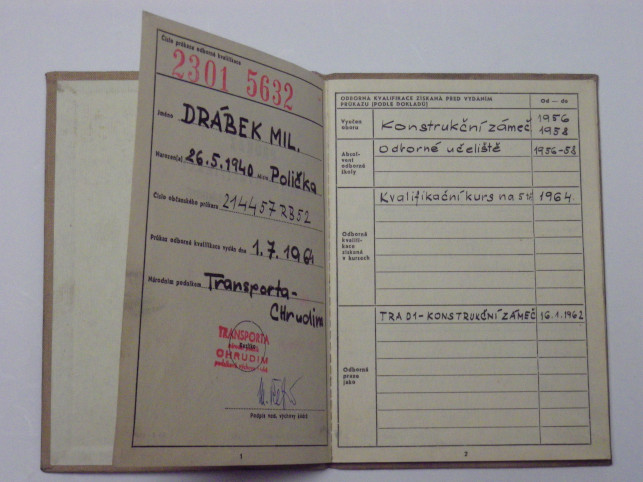 Číslo průkazu odborné kvalifikace
2301 5632
Jméno DRÁBEK MIL.
Narozen(a) 26.5.1940 Polička
Číslo občanského průkazu 214457 RB52
Průkaz odborné kvalifikace vydán dne 1.7.1964
Národním podnikem Transporta-
CHrudim
TRANSPORTA
CHRUDIM
Podpis ved. výchovy kádrů
1
ODBORNÁ KVALIFIKACE ZÍSKANÁ PŘED VYDÁNÍM
PRŮKAZU (PODLE DOKLADŮ)
Od — do
Vyučen
oboru
Konstrukční zámeč
1956
1958
Absol-
vent
odborné
školy
Odborné učeliště
1956-58
Odborná
kvalifi-
kace
získaná
v kursech
Kvalifikační kurs na
1964
Odborná
praxe
jako
TRA 01-KONSTRUKČNÍ ZÁMEČ
16.1.1962
2